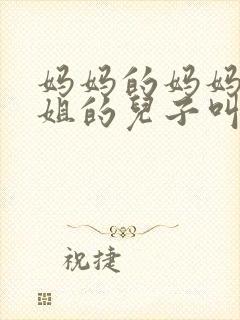 妈妈的妈妈
姐的兒子叫
祝捷